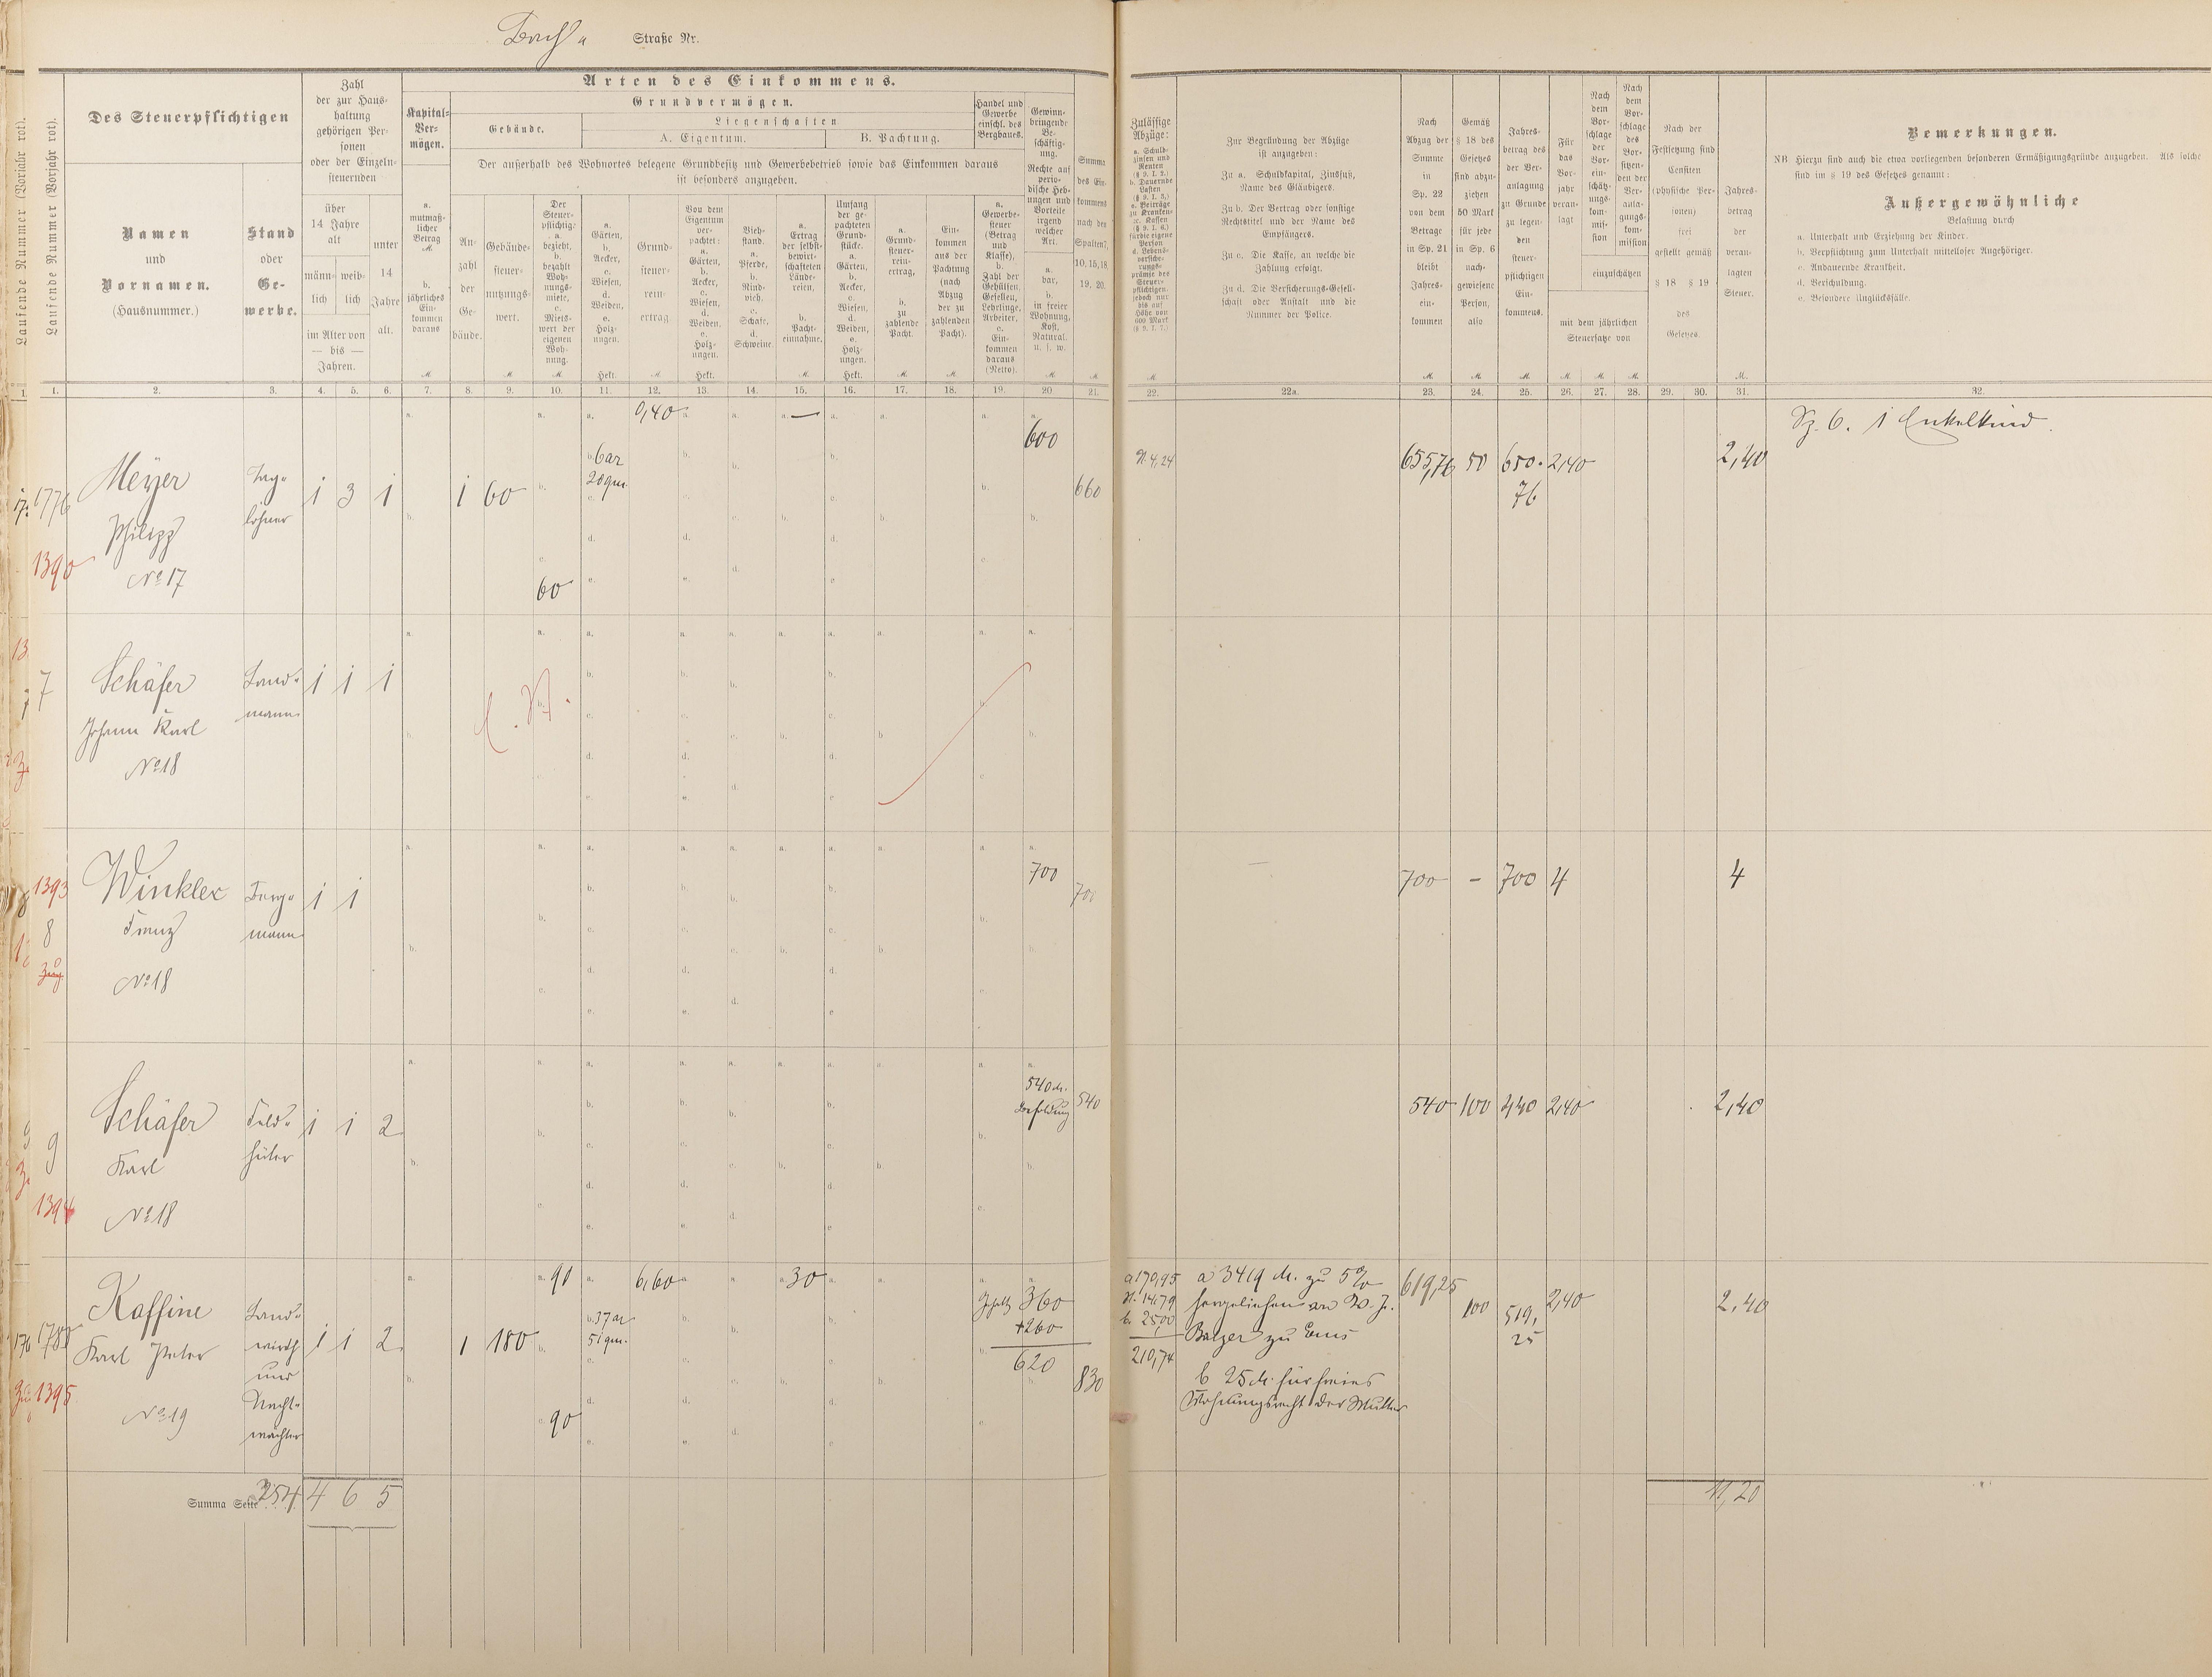 Bach= Straße Nr.
Laufende Nummer (Vorjahr rot).
Laufende Nummer (Vorjahr rot).
Des Steuerpflichtigen
Namen
und
Vornamen.
(Hausnummer.)
Stand
oder
Ge-
werbe.
Zahl
der zur Haus-
haltung
gehörigen Per-
sonen
oder der Einzeln-
steuernden
über
14 Jahre
alt
männ-
lich
weib-
lich
im Alter von
— bis —
Jahren.
unter
14
Jahre
alt.
Arten des Einkommens.
Kapital-
Ver-
mögen.
Grundvermögen.
Gebäude.
Liegenschaften
A. Eigentum.
B. Pachtung.
Der außerhalb des Wohnortes belegene Grundbesitz und Gewerbebetrieb sowie das Einkommen daraus
ist besonders anzugeben.
a.
mutmaß-
licher
Betrag
M.
b.
jährliches
Ein-
kommen
daraus
M
An-
zahl
der
Ge-
bäude.
Gebäude-
steuer-
nutzungs-
wert.
M.
Der
Steuer-
pflichtige:
a.
bezieht,
b.
bezahlt
Woh-
nungs-
miete,
c.
Miets-
wert der
eigenen
Woh-
nung.
M.
a.
Gärten,
b.
Aecker,
c.
Wiesen,
d.
Weiden,
e.
Holz-
ungen.
Hekt.
Grund-
steuer-
rein-
ertrag.
M
Von dem
Eigentum
ver-
pachtet:
a.
Gärten,
b.
Aecker,
c.
Wiesen,
d.
Weiden,
e.
Holz-
ungen.
Hekt.
Vieh-
stand.
a.
Pferde,
b.
Rind-
vieh,
c.
Schafe,
d.
Schweine.
a.
Ertrag
der selbst-
bewirt-
schafteten
Lände-
reien,
b.
Pacht-
einnahme.
M.
Umfang
der ge-
pachteten
Grund-
stücke.
a.
Gärten,
b.
Aecker,
c.
Wiesen,
d.
Weiden,
e.
Holz-
ungen.
Hekt.
a.
Grund-
steuer-
rein-
ertrag,
b.
zu
zahlende
Pacht.
M.
Ein-
kommen
aus der
Pachtung
(nach
Abzug
der zu
zahlenden
Pacht).
M.
Handel und
Gewerbe
einschl. des
Bergbaues.
a.
Gewerbe-
steuer
(Betrag
und
Klasse),
b.
Zahl der
Gehülfen,
Gesellen,
Lehrlinge,
Arbeiter,
c.
Ein-
kommen
daraus
(Netto).
Gewinn-
bringende
Be-
schäftig-
ung.
Rechte auf
perio-
dische Heb-
ungen und
Vorteile
irgend
welcher
Art.
a.
bar,
b.
in freier
Wohnung,
Kost,
Natural.
u. s. w.
M
Summa
des Ein-
kommens
nach den
Spalten 7,
10, 15, 18,
19, 20.
M
Zulässige
Abzüge:
a. Schuld-
zinsen und
Renten
(§ 9. I. 2.)
b. Dauernde
Lasten
(§ 9. I. 3.)
c. Beiträge
zu Kranken-
2c. Kassen
(§ 9. I. 6.)
für die eigene
Person
d. Lebens-
versiche-
rungs-
prämie des
Steuer-
pflichtigen,
jedoch nur
bis zur
Höhe von
600 Mark
(§ 9. I. 7.)
M.
Zur Begründung der Abzüge
ist anzugeben:
Zu a. Schuldkapital, Zinsfuß,
Name des Gläubigers.
Zu b. Der Vertrag oder sonstige
Rechtstitel und der Name des
Empfängers.
Zu c. Die Kasse, an welche die
Zahlung erfolgt.
Zu d. Die Versicherungs-Gesell-
schaft oder Anstalt und die
Nummer der Police.
Nach
Abzug der
Summe
in
Sp. 22
von dem
Betrage
in Sp. 21
bleibt
Jahres-
ein-
kommen
M.
Gemäß
§ 18 des
Gesetzes
sind abzu-
ziehen
50 Mark
für jede
in Sp. 6
nach-
gewiesene
Person,
also
M.
Jahres-
betrag des
der Ver-
anlagung
zu Grunde
zu legen-
den
steuer-
pflichtigen
Ein-
kommens.
M.
Für
das
Vor-
jahr
veran-
lagt
Nach
dem
Vor-
schlage
der
Vor-
ein-
schätz-
ungs-
kom-
mis-
sion
Nach
dem
Vor-
schlage
des
Vor-
sitzen-
den der
Ver-
anla-
gungs-
kom-
mission
einzuschätzen
mit dem jährlichen
Steuersatze von
M. M. M.
Nach der
Festsetzung sind
Censiten
(physische Per-
sonen)
frei
gestellt gemäß
§ 18 § 19
des
Gesetzes.
Jahres-
betrag
der
veran-
lagten
Steuer.
M.
Bemerkungen.
NB Hierzu sind auch die etwa vorliegenden besonderen Ermäßigungsgründe anzugeben. Als solche
sind im § 19 des Gesetzes genannt:
Außergewöhnliche
Belastung durch
a. Unterhalt und Erziehung der Kinder.
b. Verpflichtung zum Unterhalt mittelloser Angehöriger.
c. Andauernde Krankheit.
d. Verschuldung.
e. Besondere Unglücksfälle.
1. 2. 3. 4. 5. 6. 7. 8. 9. 10. 11. 12. 13. 14. 15. 16. 17. 18. 19. 20. 21. 22. 22a. 23. 24. 25. 26. 27. 28. 29. 30. 31. 32.
1776
1390
Meyer
Philipp
No 17
Tag=
löhner
1 3 1
1 60
60
6ar
20qm.
0,40
—
600
660
4,24
655,76 50 650.
76
2,40
2,40
Sp. 6. 1 Enkelkind.
7
Schäfer
Johann Karl
No 18
Land=
mann
1 1 1
1393
8
Winkler
Franz
No 18
Berg=
mann
1 1
700
700
700 - 700 4
4
9
1394
Schäfer
Karl
No 18
Feld=
hüter
1 1 2
540 M.
Besoldung
540
540 100 440 2,40
2,40
1780
1395
Kaffine
Karl Peter
No 19
Land=
wirth
und
Nacht=
wächter
1 1 2
1 180
90
90
37ar
51qm.
6,60
30
360
+260
620
830
a 170,95
14,79
b. 25,00
210,74
a 3419 M. zu 5%
hergeliehen an W. J.
Balzer zu Ems
b 25 M. für freies
Wohnungsrecht der Mutter
619,25
100
519,
25
2,40
2,40
Summa Seite 254 4 6 5
11,20